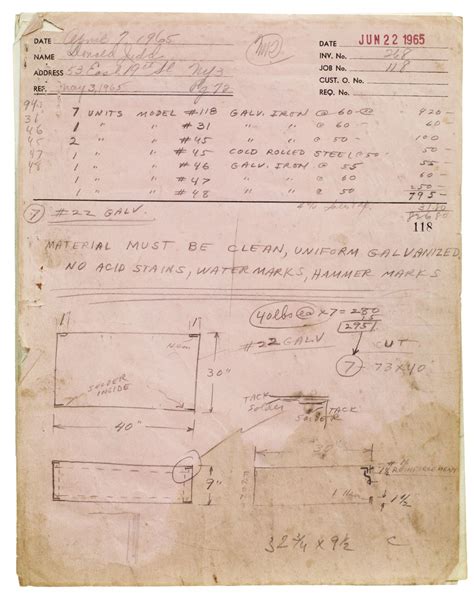 DATE April 7, 1965
NAME Donald Judd
ADDRESS 53 East 19th St NY3
REF. May 3, 1965 Pg 78
DATE JUN 22 1965
INV. No. 268
JOB No. 118
CUST. O. No.
REQ. No.
94
31 7 UNITS MODEL #118 GALV. IRON @ 60- 420-
46 1 " " #31 " " @ 60-
45 2 " " #45 " " @ 50
47 1 " " #45 COLD ROLLED STEEL @ 50
48 1 " " #46 GALV. IRON @ 55
1 " " #47 " " @ 55
1 " " #48 " " @ 50
795-
118
7 #22 GALV.
MATERIAL MUST BE CLEAN, UNIFORM GALVANIZED,
NO ACID STAINS, WATERMARKS, HAMMER MARKS
40lbs ea x7 = 280
15
295
#22 GALV
CUT
7 - 73x40
SOLDER
INSIDE
30"
40"
TACK
Solder
TACK
Solder
9"
38
REINFORCEMENT
1 1/2
32 3/4 x 9 1/2 C